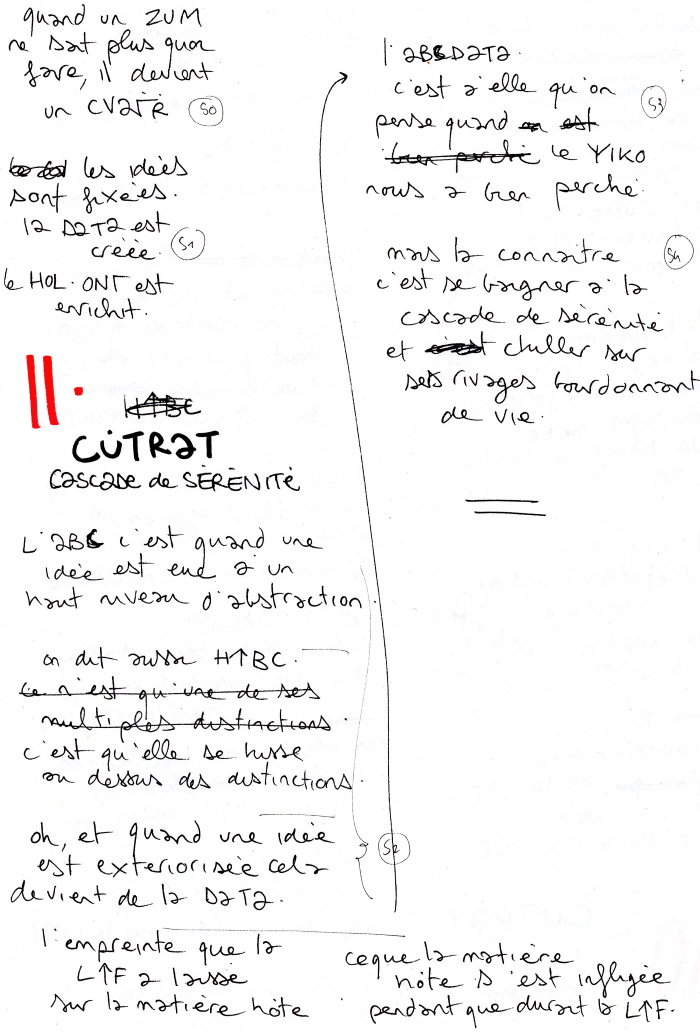 quand un ZUM
ne sait plus quoi
faire, il devient
un CVaTR S0
les idées
sont fixées.
la DaTa est
créée. S1
le HOL.ONT est
enrichit.
II.
H↑BC
CUTRaT
cascade de SÉRÉNITÉ
L'aBC c'est quand une
idée est end a un
haut niveau d'abstraction
on dit aussi H↑BC.
ce n'est qu'une de ses
multiples distinctions.
c'est qu'elle se hisse
au dessus des distinctions.
oh, et quand une idée
est exteriorisée cela
devient de la DaTa.
S2
l'empreinte que la
L↑F a laissé
sur la matière hôte
ce que la matière
hôte s'est infligée
pendant que durait la L↑F.
l'aBCDaTa.
c'est à elle qu'on
pense quand on est S3
bien perché le YIKO
nous a bien perché.
mais la connaître S4
c'est se baigner à la
cascade de sérénité
et c'est chiller sur
ses rivages bourdonnant
de vie.